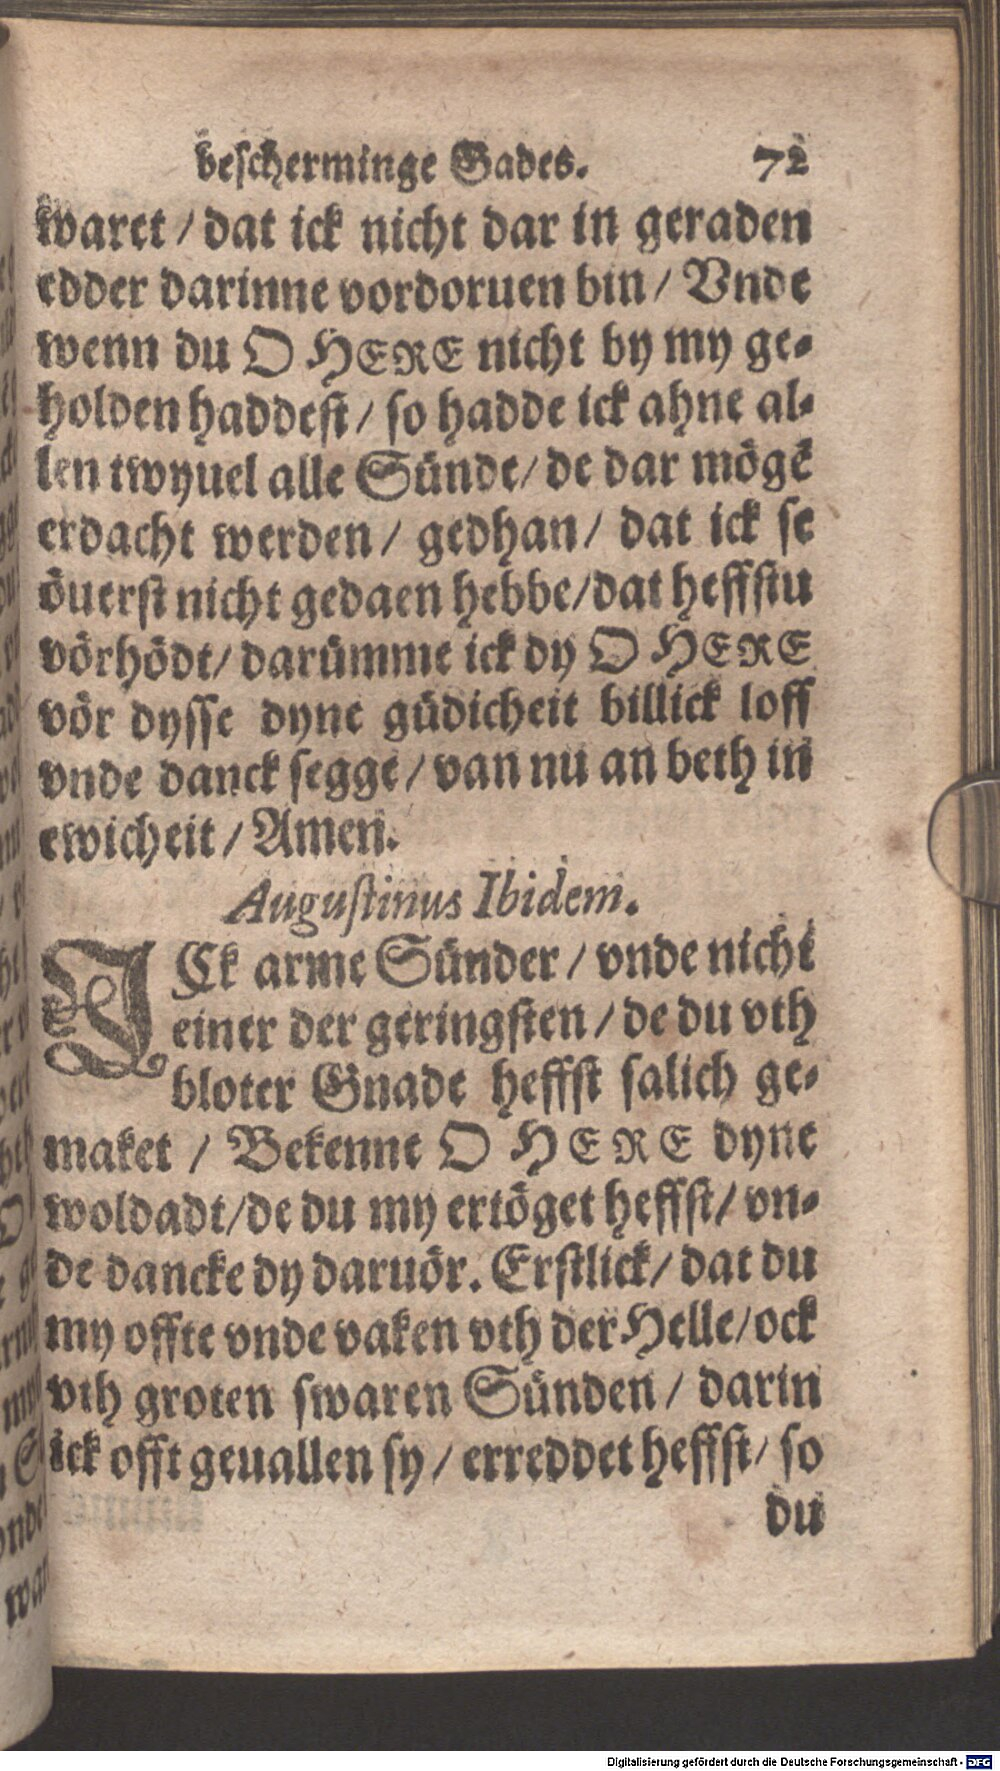 bescherminge Gades. 72
waret / dat ick nicht dar in geraden
edder darinne vordoruen bin / Vnde
wenn du O HERE nicht by my ge-
holden haddest / so hadde ick ahne al-
len twyuel alle Sünde / de dar mögē
erdacht werden / gedhan / dat ick se
öuerst nicht gedaen hebbe / dat heffstu
vörhödt / darümme ick dy O HERE
vör dysse dyne güdicheit billick loff
vnde danck segge / van nu an beth in
ewicheit / Amen.
Augustinus Ibidem.
ICk arme Sünder / vnde nicht
einer der geringsten / de du vth
bloter Gnade heffst salich ge-
maket / Bekenne O HERE dyne
woldadt / de du my ertöget heffst / vn-
de dancke dy daruör. Erstlick / dat du
my offte vnde vaken vth der Helle / ock
vth groten swaren Sünden / darin
ick offt geuallen sy / erreddet heffst / so
du
Digitalisierung gefördert durch die Deutsche Forschungsgemeinschaft - DFG